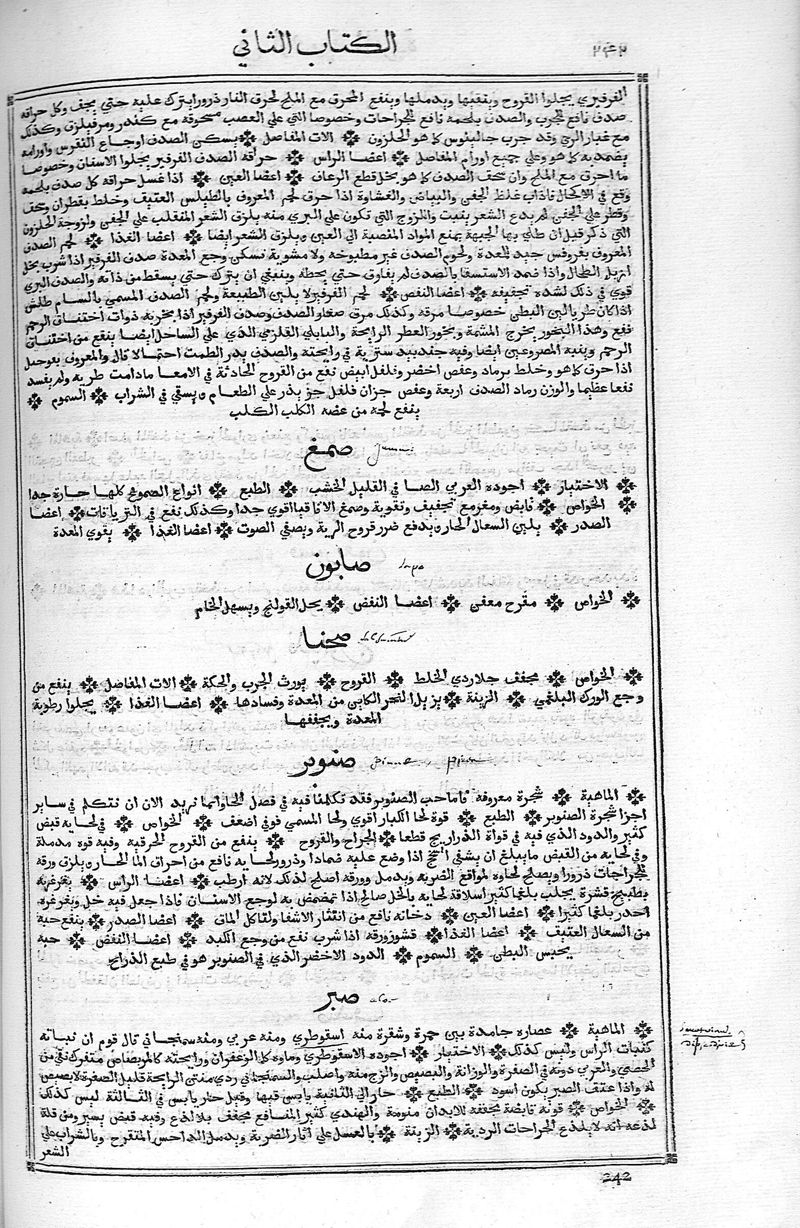 الكتاب الثاني
٢٤٢
الفرفيري يجلوا القروح وينقيها ويدملها وينفع المحرق مع الملح لحرق النار ذرورا يترك عليه حتي يجف وكل حراقه
صدف نافع للجرب والصدف بلحمه نافع للجراحات وخصوصا التي علي العصب مسحوقة مع كندر ومر فيلزق وكذلك
مع غبار الرحي وقد جرب جالينوس كما هو الحلزون الات المفاصل يسكن الصدف اوجاع النقرس واورامه
يضمد به كما هو وعلي جميع اورام المفاصل اعضا الراس حراقة الصدف الفرفير يجلوا الاسنان وخصوصا
ما احرق مع الملح وان سحق الصدف كما هو بخل قطع الرعاف اعضا العين اذا غسل حراقه كل صدف بلحمه
وقع في الاكحال فاذاب غلظ الجفن والبياض والغشاوة اذا حرق لحم المعروف بالطيلس العتيف وخلط بقطران وسحق
وقطر علي الجفن لم يدع الشعر ينبت والمزوج التي تكون علي البري منه يلزق الشعر المنقلب علي الجفن ولزوجة الحلزون
التي ذكر قيل ان طلي بها الجبهة يمنع المواد المنصبة الي العين ويلزق الشعر ايضا اعضا الغذا لحم الصدف
المعروف بفروفس جيد للمعدة ولحوم الصدف غير مطبوخه ولا مشوية تسكن وجع المعدة صدف الفرفير اذا شرب بخل
ازبل الطحال واذا ضمد الاستسقا بالصدف لم يفارق حتي يحطه وينبغي ان يترك حتي يسقط من ذاته والصدف البري
قوي في ذلك لشده تجفيفه اعضا النفض لحم الفرفير لا يلين الطبيعة ولحم الصدف المسمي بالسام طلس
اذا كان طريا لين البطن خصوصا مرقه وكذلك مرق صغار الصدف وصدف الفرفير اذا بخر به ذوات اختناق الرحم
نفع وهذا البخور يخرج المشمة وبخور العطر الرايحة والبابلي القلزمي الذي علي الساحل ايضا ينفع من اختناق
الرحم وينبه المصروعين ايضا وفيه جندبيد سترية في رايحته والصدف يدر الطمت احتمالا قال والمعروف بفوحيل
اذا حرق كما هو وخلط برماد وعفص اخضر وفلفل ابيض نفع من القروح الحادثة في الامعا مادامت طريه ولم يفسد
نفعا عظيما والوزن رماد الصدف اربعة وعفص جزان فلفل جز يذر علي الطعام ويسقي في الشراب السموم
ينفع لحمه من عضه الكلب الكلب
صمغ
الاختيار اجوده العربي الصا في القليل الخشب الطبع انواع الصموغ كلها حارة جدا
الخواص قابض ومغرمع تجفيف وتقوية وصمغ الاقاقيا اقوي جدا وكذلك نفع في الترياقات اعضا
الصدر يلين السعال الحار ويدفع ضرر قروح الرية ويصفي الصوت اعضا الغذا يقوي المعدة
صابون
الخواص مقرح معفن اعضا النفض يحل القولنج ويسهل الخام
صحنا
الخواص مجفف جلا ردي الخلط القروح يورث الجرب والحكة الات المفاصل ينفع من
وجع الورك البلغمي الزينة يزيل البخر الكاين من المعدة وفسادها اعضا الغذا يجلوا رطوبة
المعدة ويجففها
صنوبر
الماهية شجرة معروفه فاما حب الصنوبر فقد تكلمنا فيه في فصل الحا وانما نريد الان ان نتكلم في ساير
اجزا شجرة الصنوبر الطبع قوة لحا الكبار اقوي ولحا المسمي قوفي اضعف الخواص في لحايه قبض
كثير والدود الذي فيه في قواة الذراريح قطعا الجراح والقروح ينفع من القروح الحرقيه وفيه قوه مدملة
وفي لحايه من القبض ما يبلغ ان يشفي السحج اذا وضع عليه ضمادا وذرور لحايه نافع من احراق الما الحار ويلزق ورقه
للجراحات ذرورا ويصلح لحاوه لمواقع الضربه ويدمل وورقه اصلح لذلك لانه ارطب اعضا الراس يتغرغر
بطبيخ قشرة يجلب بلغما كثير اسلاقة لحايه بالخل صالح اذا تمضمض به لوجع الاسنان فاذا جعل فيه خل وتغرغر به
احدر بلغما كثيرا اعضا العين دخانه نافع من انتثار الاشفار ولتاكل الماق اعضا الصدر ينفع حبه
من السعال العتيف اعضا الغذا قشور ورقه اذا شرب نفع من وجع الكبد اعضا النفض حبه
يحبس البطن السموم الدود الاخضر الذي في الصنوبر هو في طبع الذراريح
صبر
الماهية عصاره جامدة بين حمرة وشقرة منه اسقوطري ومنه عربي ومنه سمنجا ني قال قوم ان نباته
كنبات الراس وليس كذلك الاختيار اجوده الاسقوطري وماوه كما الزعفران ورايحته كالمر بصاص متفرك نقي من
الحصي والعربي دونه في الصفرة والوزانة والبصيص والزج منه واصلب والسمنجاني ردي منتن الرايحة قليل الصفرة لا بصيص
له واذا عتق الصبر يكون اسود الطبع حار الي الثانية يابس فيها وقيل حار يابس في الثالثة ليس كذلك
الخواص قوته قابضة مجففه للابدان منومة والهندي كثير المنافع مجفف بلا لذع وفيه قبض يسير ومن قلة
لذعه انه لا يلذع الجراحات الردية الزينة بالعسل علي اثار الضربة ويدمل الداحس المتقرح وبالشراب علي
الشعر
242